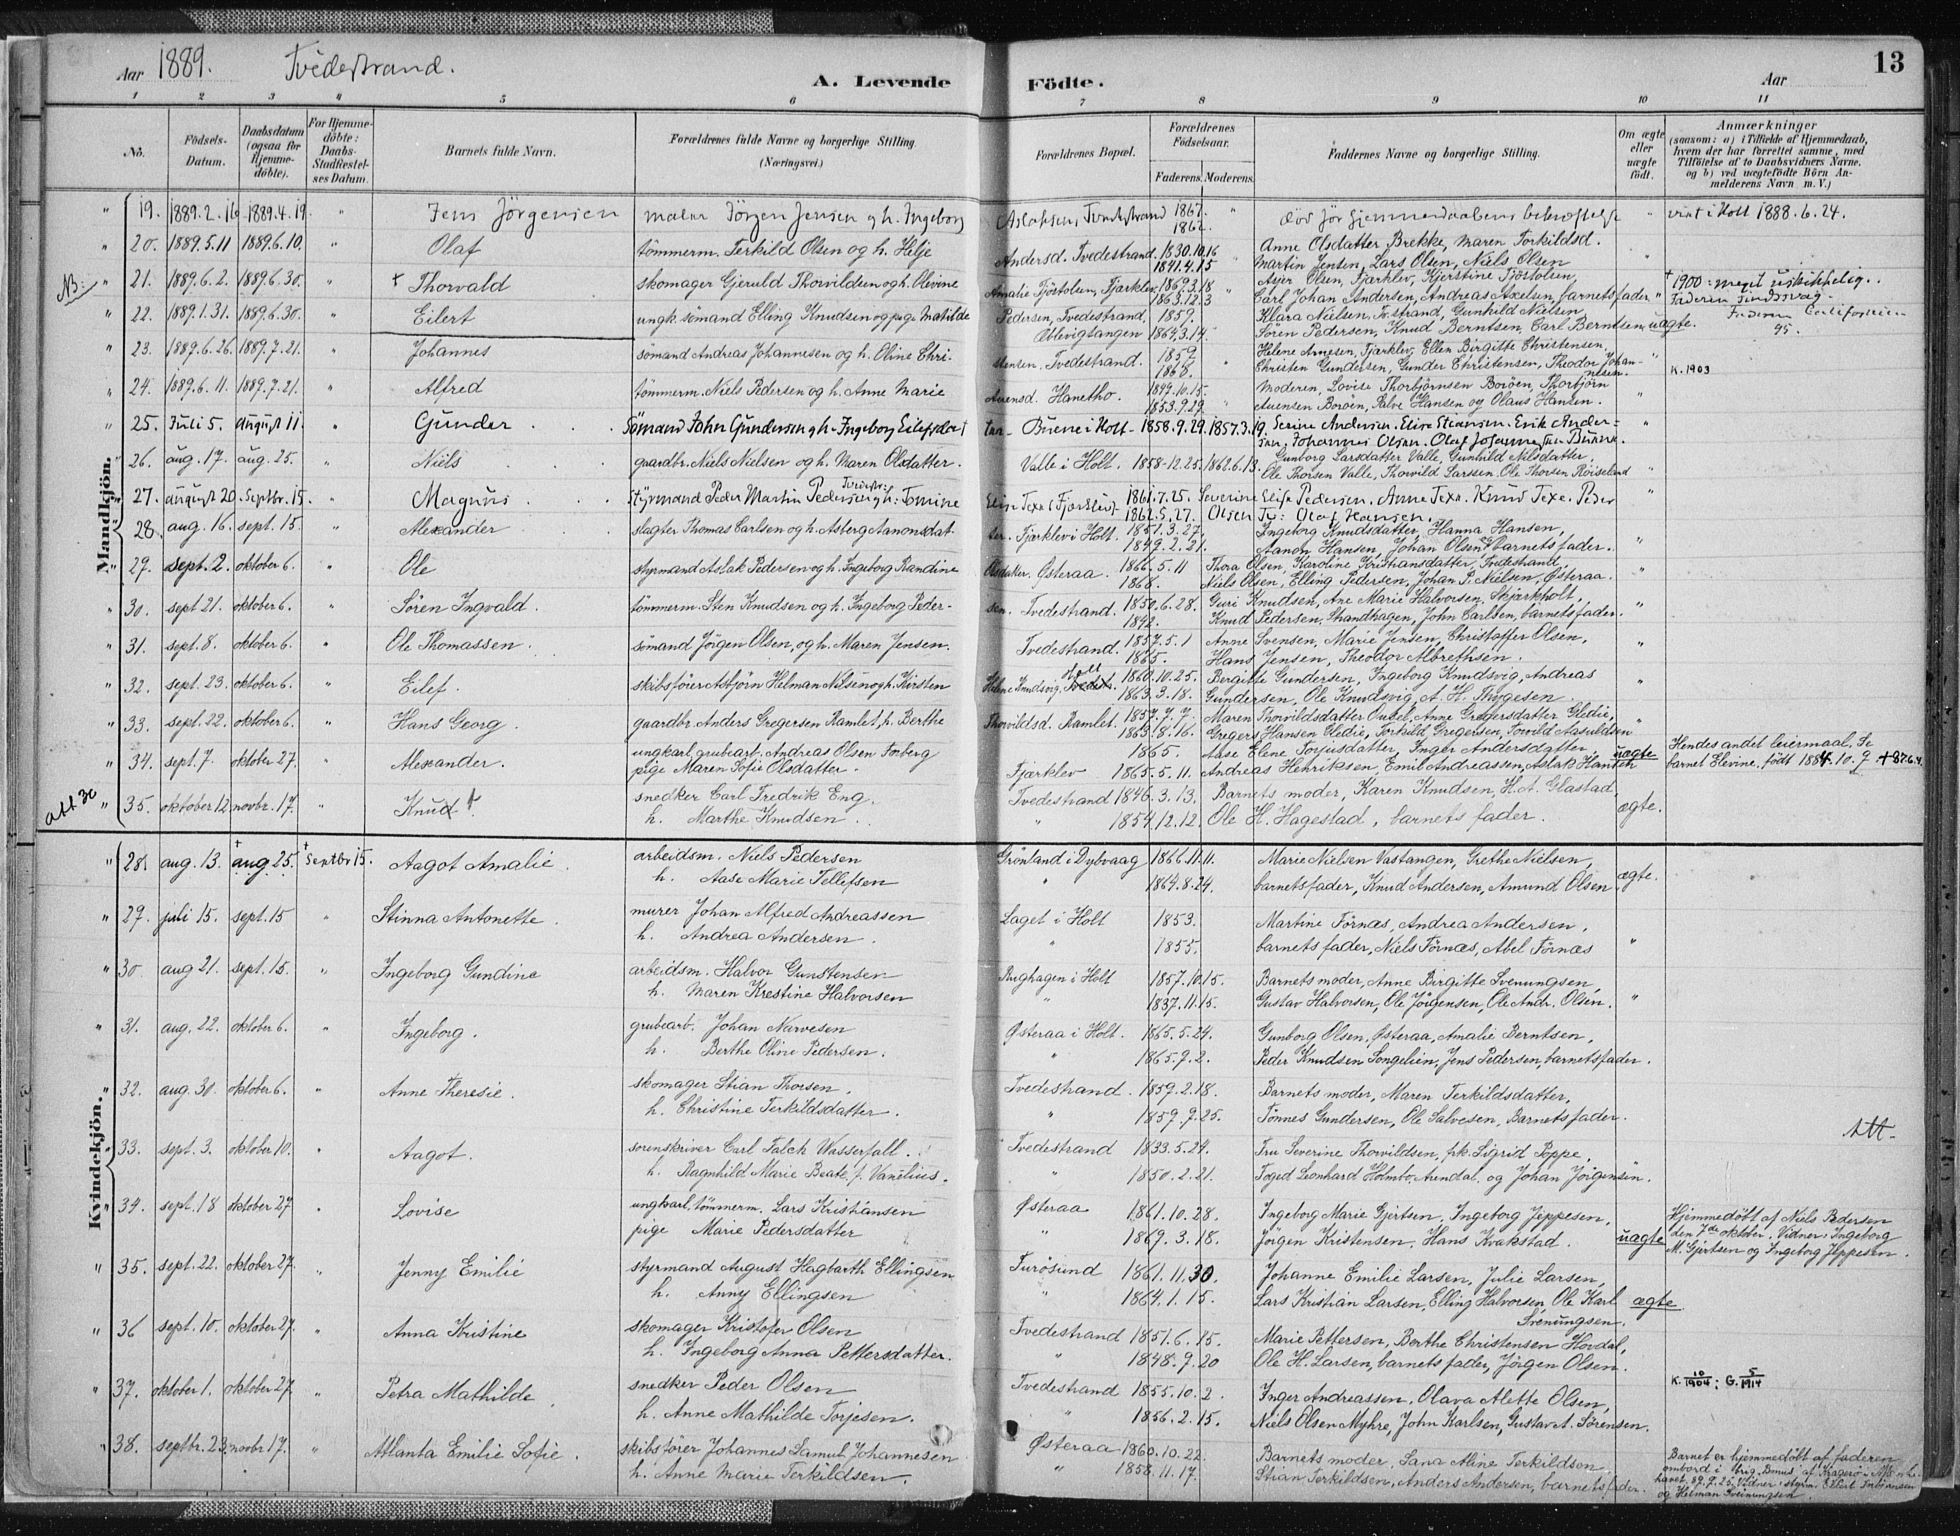 Aar 1889. Tvedestrand. A. Levende Födte. Aar 13
1 2 3 4 5 6 7 8 9 10 11
No. Födsels-Datum. Daabsdatum (ogsaa for Hjemme-döbte). For Hjemme-döbte: Daabs-Stadfæstel-ses Datum. Barnets fulde Navn. Forældrenes fulde Navne og borgerlige Stilling (Næringsvei.) Forældrenes Bopæl. Forældrenes Födselsaar. Faderens. Moderens. Faddernes Navne og borgerlige Stilling. Om ægte eller uægte födt. Anmærkninger (saasom: a) i Tilfælde af Hjemmedaab, hvem der har forrettet samme, med Tilföielse af to Daabsvidners Navne, og b) ved uægtefödte Börn Anmelderens Navn m. V.)
Mandkjön.
" 19. 1889.2.16 1889.4.19. " Jens Jörgensen maler Jörgen Jensen og h. Ingeborg Aslaksen, Tvedestrand 1867. "
1862. viet i Holt 1888.6.24.
" 20. 1889.5.11 1889.6.10. " Olaf tömmerm. Terkild Olsen og h. Helje Andersd. Tvedestrand. 1830.10.16 Anne Olsdatter Brekke, Maren Torkildsd.
1841.4.15 Martin Jensen, Lars Olsen, Niels Olsen
NB: " 21. 1889.6.2. 1889.6.30. " + Thorvald skomager Gjeruld Thorvildsen og h. Olivine Amalie Tjöstolsen, Fjærklev. 1869.3.18 Olsen, Fjærklev, Kjerstine Tjöstolsen,
1863.12.3 Carl Johan Andersen, Andreas Axelsen, barnets fader. " + 1900: meget uskikkelig.
Faderen sindssvag.
" 22. 1889.1.31. 1889.6.30. " Eilert ungk. sömand Elling Knudsen og pige Matilde Pedersen, Tvedestrand, 1859. Klara Nielsen, Tv.strand, Gunhild Nielsen
1864.3.14. Sören Pedersen, Knud Berntsen, Carl Berntsen uægte. Faderen Californien 95.
" 23. 1889.6.26. 1889.7.21. " Johannes sömand Andreas Johannesen og h. Oline Christensen, Tvedestrand. 1859. Helene Arnesen, Fjærklev, Ellen Birgitte Christensen,
1868. Christen Gundersen, Gunder Christensen, Theodor Johannesen.
" 24. 1889.6.11. 1889.7.21. " Alfred tömmerm. Niels Pedersen og h. Anne Marie Auensd. Hanetho. 1849.10.15. Moderen, Lovise Thorbjörnsen Boröen, Thorbjörn
1853.9.29. Auensen Boröen, Salve Hansen og Olaus Hansen. K. 1903
" 25. Juli 5. august 11. " Gunder Sömand John Gundersen og h. Ingeborg Eilefsdatter Buene i Holt 1858.9.29. 1857.3.19. Serine Andersen. Elise Stiansen. Erik Andersen.
Johannes Olsen. Olaf Johannesen Buene.
" 26. aug. 17. aug. 25. " Niels gaardbr. Niels Nielsen og h. Maren Olsdatter. Valle i Holt. 1858.12.25. 1862.6.13. Gunborg Larsdatter Valle, Gunhild Nilsdatter,
Ole Thorsen Valle, Thorvild Larssen, Ole Thorsen Röiseland
" 27. august 20. Septbr. 15. " Magnus Styrmand Peder Martin Pedersen og h. Tomine Elise Texe i Fjærklev. 1861.7.25. Severine Elise Pedersen. Anne Texe. Knud Texe. Peder
1862.5.27. Olsen Tv: Olaf Hansen.
" 28. aug. 16. sept. 15. " Alexander slagter Thomas Carlsen og h. Asberg Aanonsdatter. Fjærklev i Holt. 1851.3.27. Ingeborg Knudsdatter, Hanna Hansen,
1849.2.21. Aanon Hansen, Johan Olsen og barnets fader.
" 29. sept. 2. oktober 6. " Ole styrmand Aslak Pedersen og h. Ingeborg Randine Olsdatter. Österaa. 1866.5.11 Thora Olsen, Karoline Kristiansdatter, Tvedestrand,
1868. Niels Olsen, Elling Pedersen, Johan P. Nielsen, Østeraa.
" 30. sept 21. oktober 6. " Sören Ingvald. tömmerm. Sten Knudsen og h. Ingeborg Pedersen. Tvedestrand. 1850.6.28. Guri Knudsen, Ane Marie Halvorsen, Skjærkholt,
1842. Knud Pedersen, Strandhagen, John Carlsen, barnets fader.
" 31. sept. 8. oktober 6. " Ole Thomassen. sömand Jörgen Olsen, og h. Maren Jensen. Tvedestrand. 1857.5.1 Anne Svensen, Marie Jensen, Christoffer Olsen,
1865. Hans Jensen, Theodor Albrethsen.
" 32. sept. 23. oktober 6. " Eilef. skibsförer Asbjörn Helman Nilsen og h. Kirsten Helene Knudsvig, Holt 1860.10.25. Birgitte Gundersen, Ingeborg Knudsvig, Andreas
1863.3.18. Gundersen, Ole Knudsvig, A. H. Thygesen.
" 33. sept. 22. oktober 6. " Hans Georg. gaardbr. Anders Gregersen Ramlet, h. Berthe Thorvildsd. Ramlet. 1857.7.7. Maren Thorvildsdatter, Anne Gregersdatter Gledie,
1863.8.16. Gregers Hansen Gledie, Torkild Gregersen, Torvild Aasuldsen
" 34. sept. 7. oktober 27. " Alexander. ungkarl, grubearb. Andreas Olsen Forberg 1865. Aase Elene Torjusdatter, Inger Andersdatter, uægte
pige Maren Sofie Olsdatter. Fjærklev 1865.5.11. Andreas Henriksen, Emil Andreassen, Aslak Hansen Hendes andet leiermaal. Se
barnet Elevine, födt 1884.10.9.
att 30 " 35. oktober 12 novbr. 17. " Knud + snedker Carl Fredrik Eng. Tvedestrand 1846.3.13. Barnets moder, Karen Knudsen, H. A. Glastad
h. Marthe Knudsen. " 1854.12.12. Ole H. Hagestad, barnets fader. ægte.
Kvindekjön.
" 28. aug. 13. + aug 25. + septbr 15. Aagot Amalie arbeidsm. Niels Pedersen Grönland i Dybvaag 1866.11.11. Marie Nielsen Vastangen, Grethe Nielsen,
h. Aase Marie Tellefsen " 1864.8.24. barnets fader, Knud Andersen, Amund Olsen. ægte.
" 29. juli 15. sept. 15 " Stinna Antonette. murer Johan Alfred Andreassen Laget i Holt 1853. Martine Törnæs, Andrea Andersen,
h. Andrea Andersen. " 1855. barnets fader, Niels Törnæs, Abel Törnæs "
" 30. aug 21. sept. 15. " Ingeborg Gundine arbeidsm. Halvor Gunstensen Rughagen i Holt 1857.10.15. Barnets moder, Anne Birgitte Svenungsen,
h. Maren Krestine Halvorsen " 1837.11.15. Gustav Halvorsen, Ole Jörgensen, Ole Andr. Olsen. "
" 31. aug. 22. oktober 6. " Ingeborg. grubearb. Johan Narvesen Østeraa i Holt. 1865.5.24. Gunborg Olsen, Østeraa, Amalie Berntsen,
h. Berthe Oline Pedersen. " 1865.9.2. Peder Knudsen Songelien, Jens Pedersen, barnets fader.
" 32. aug. 30. oktober 6. " Anne Theresie. skomager Stian Thorsen. Tvedestrand. 1859.2.18. Barnets moder, Maren Terkildsdatter,
h. Christine Terkildsdatter. " 1859.9.25. Tönnes Gundersen, Ole Salvesen, Barnets fader.
" 33. sept. 3. oktober 10. " Aagot. sorenskriver Carl Falch Wasserfall. Tvedestrand 1833.5.24. Fru Severine Thorvildsen, frk. Sigrid Poppe,
h. Ragnhild Marie Beate f. Vanelius. " 1850.2.21. Foged Leonhard Holmbo, Arendal. og Johan Jörgensen. Att.
" 34. sept. 18 oktober 27. " Lovise ungkarl. tömmerm. Lars Kristiansen Østeraa 1861.10.28. Ingeborg Marie Gjertsen, Ingeborg Jeppesen, Hjemmedöbt af Niels Pedersen
pige Marie Pedersdatter " 1869.3.18. Jörgen Kristensen, Hans Kvakstad. uægte den 7de oktober. Vidner: Ingeborg
M. Gjertsen og Ingeborg Jeppesen.
" 35. sept. 22. oktober 27. " Jenny Emilie styrmand August Hagbarth Ellingsen Furösund 1861.11.30. Johanne Emilie Larsen, Julie Larsen,
h. Anny Ellingsen " 1864.1.15. Lars Kristian Larsen, Elling Halvorsen, Ole Karl Svenungsen. ægte
" 36 sept. 10. oktober 27. " Anna Kristine skomager Kristofer Olsen Tvedestrand 1851.6.15. Marie Pettersen, Berthe Christensen Hovdal,
h. Ingeborg Anna Pettersdatter. " 1848.9.20 Ole H. Larsen, barnets fader, Jörgen Olsen.
" 37. oktober 1. oktober 27. " Petra Mathilde. snedker Peder Olsen Tvedestrand 1855.10.2. Inger Andreassen, Olava Alette Olsen, K. 10/1904; G. 5/1914
h. Anne Mathilde Torjesen. " 1856.2.15. Niels Olsen Myhre, John Karlsen, Gustav A. Sörensen.
" 38. septbr. 23. novbr 17. " Atlanta Emilie Sofie. skibsförer Johannes Samuel Johannesen Østeraa 1860.10.22. Barnets moder, Sana Aline Terkildsen Barnet er hjemmedöbt af faderen
h. Anne Marie Terkildsen. " 1858.11.17. Stian Terkildsen, Anders Andersen, barnets fader. ombord i brig af Kragerö
havet 89.9.25. Vidner: styrm.
og Helman Sveinungsen.